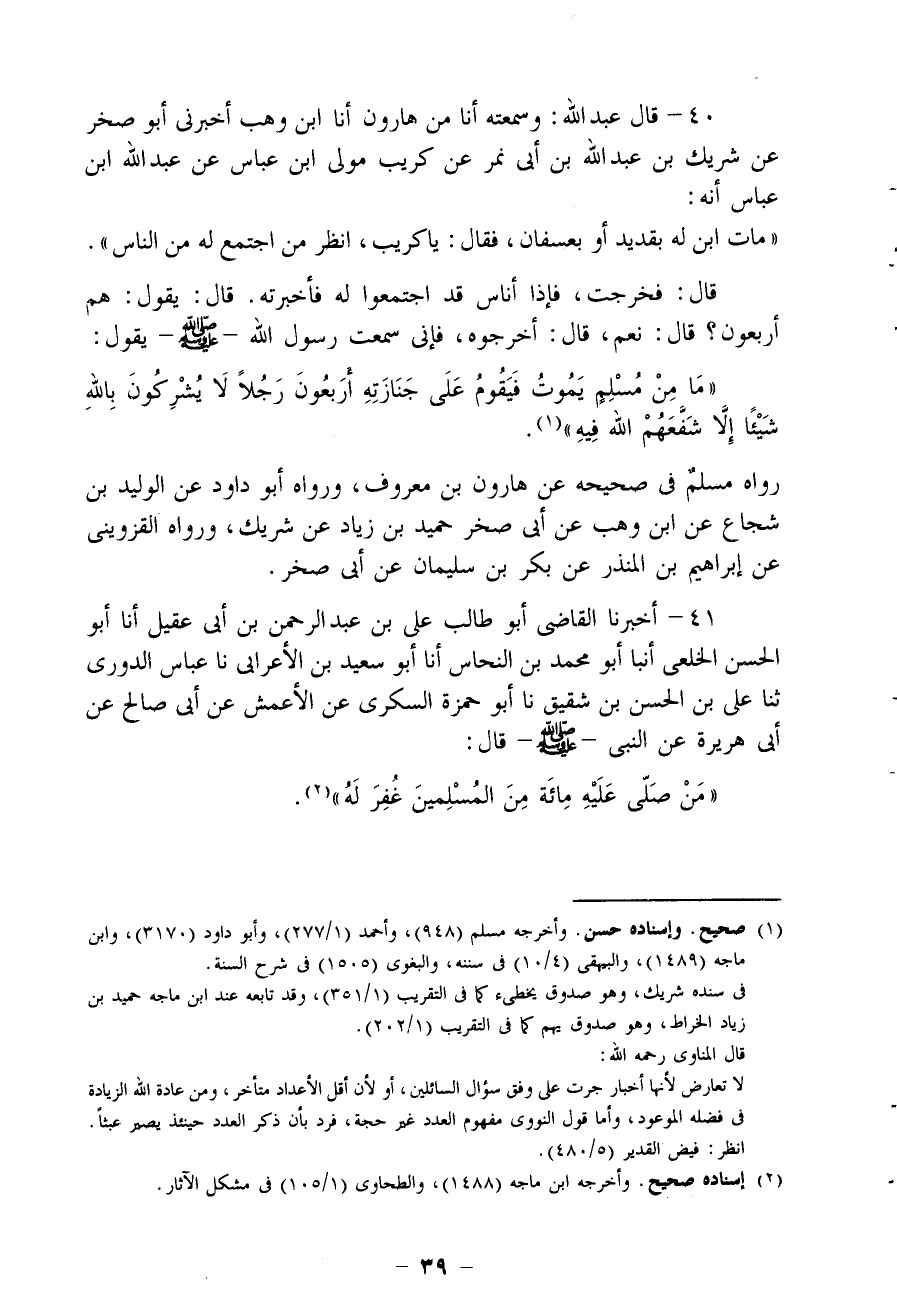 ٤٠ – قال عبد الله : وسمعته أنا من هارون أنا ابن وهب أخبرنى أبو صخر
عن شريك بن عبدالله بن أبى نمر عن كريب مولى ابن عباس عن عبدالله ابن
عباس أنه :
« مات ابن له بقديد أو بعسفان ، فقال : ياكريب ، انظر من اجتمع له من الناس » .
قال : فخرجت ، فإذا أناس قد اجتمعوا له فأخبرته . قال : يقول : هم
أربعون ؟ قال : نعم ، قال : أخرجوه ، فإنى سمعت رسول الله – ﷺ – يقول :
« مَا مِنْ مُسْلِمٍ يَمُوتُ فَيَقُومُ عَلَى جَنَازَتِهِ أَرَبعُونَ رَجُلاً لَا يُشْرِكُونَ بِاللهِ
شَيْئًا إِلَّا شَفَّعَهُمْ الله فِيهِ »(١) .
رواه مسلمٌ فى صحيحه عن هارون بن معروف ، ورواه أبو داود عن الوليد بن
شجاع عن ابن وهب عن أبى صخر حميد بن زياد عن شريك ، ورواه القزوينى
عن إبراهيم بن المنذر عن بكر بن سليمان عن أبى صخر .
٤١ – أخبرنا القاضى أبو طالب على بن عبدالرحمن بن أبى عقيل أنا أبو
الحسن الخلعى أنبا أبو محمد بن النحاس أنا أبو سعيد بن الأعرابى نا عباس الدورى
ثنا على بن الحسن بن شقيق نا أبو حمزة السكرى عن الأعمش عن أبى صالح عن
أبى هريرة عن النبى – ﷺ – قال :
« مَنْ صَلَّى عَلَيْهِ مِائَة مِنَ المُسْلِمينَ غُفِرَ لَهُ »(٢) .
(١) صحيح . وإسناده حسن . وأخرجه مسلم (٩٤٨) ، وأحمد (٢٧٧/١) ، وأبو داود (٣١٧٠) ، وابن
ماجه (١٤٨٩) ، والبيهقى (١٠/٤) فى سننه ، والبغوى (١٥٠٥) فى شرح السنة .
فى سنده شريك ، وهو صدوق يخطىء كما فى التقريب (٣٥١/١) ، وقد تابعه عند ابن ماجه حميد بن
زياد الخراط ، وهو صدوق يهم كما فى التقريب (٢٠٢/١) .
قال المناوى رحمه الله :
لا تعارض لأنها أخبار جرت على وفق سؤال السائلين ، أو لأن أقل الأعداد متأخر ، ومن عادة الله الزيادة
فى فضله الموعود ، وأما قول النووى مفهوم العدد غير حجة ، فرد بأن ذكر العدد حينئذ يصير عبثاً .
انظر : فيض القدير (٤٨٠/٥) .
(٢) إسناده صحيح . وأخرجه ابن ماجه (١٤٨٨) ، والطحاوى (١٠٥/١) فى مشكل الآثار .
– ٣٩ –